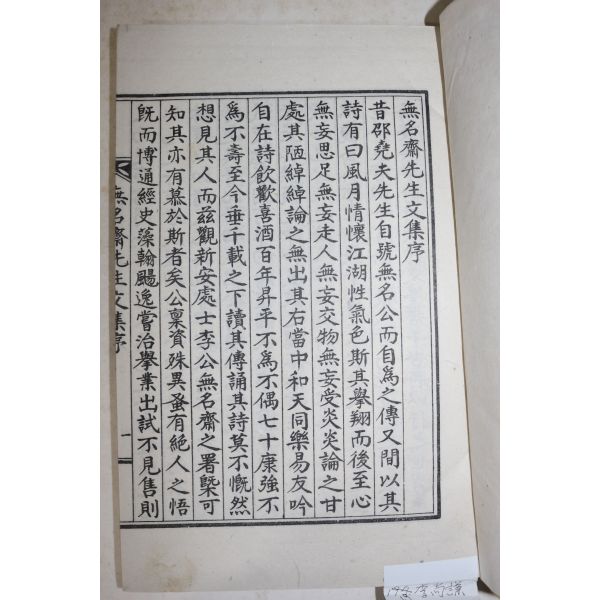 無名齋先生文集序
昔邵堯夫先生自號無名公而自爲之傳又間以其
詩有曰風月情懷江湖性氣色斯其擧翔而後至心
無妄思足無妄走人無妄交物無妄受炎炎論之甘
處其陋綽綽論之無出其右當中和天同樂易友吟
自在詩飮歡喜酒百年昇平不爲不偶七十康強不
爲不壽至今垂千載之下讀其傳誦其詩莫不慨然
想見其人而玆觀新安處士李公無名齋之署槩可
知其亦有慕於斯者矣公稟質殊異蚤有絕人之悟
旣而博通經史藻翰颺逸嘗治擧業出試不見售則
無名齋先生文集序
一
李尙謙